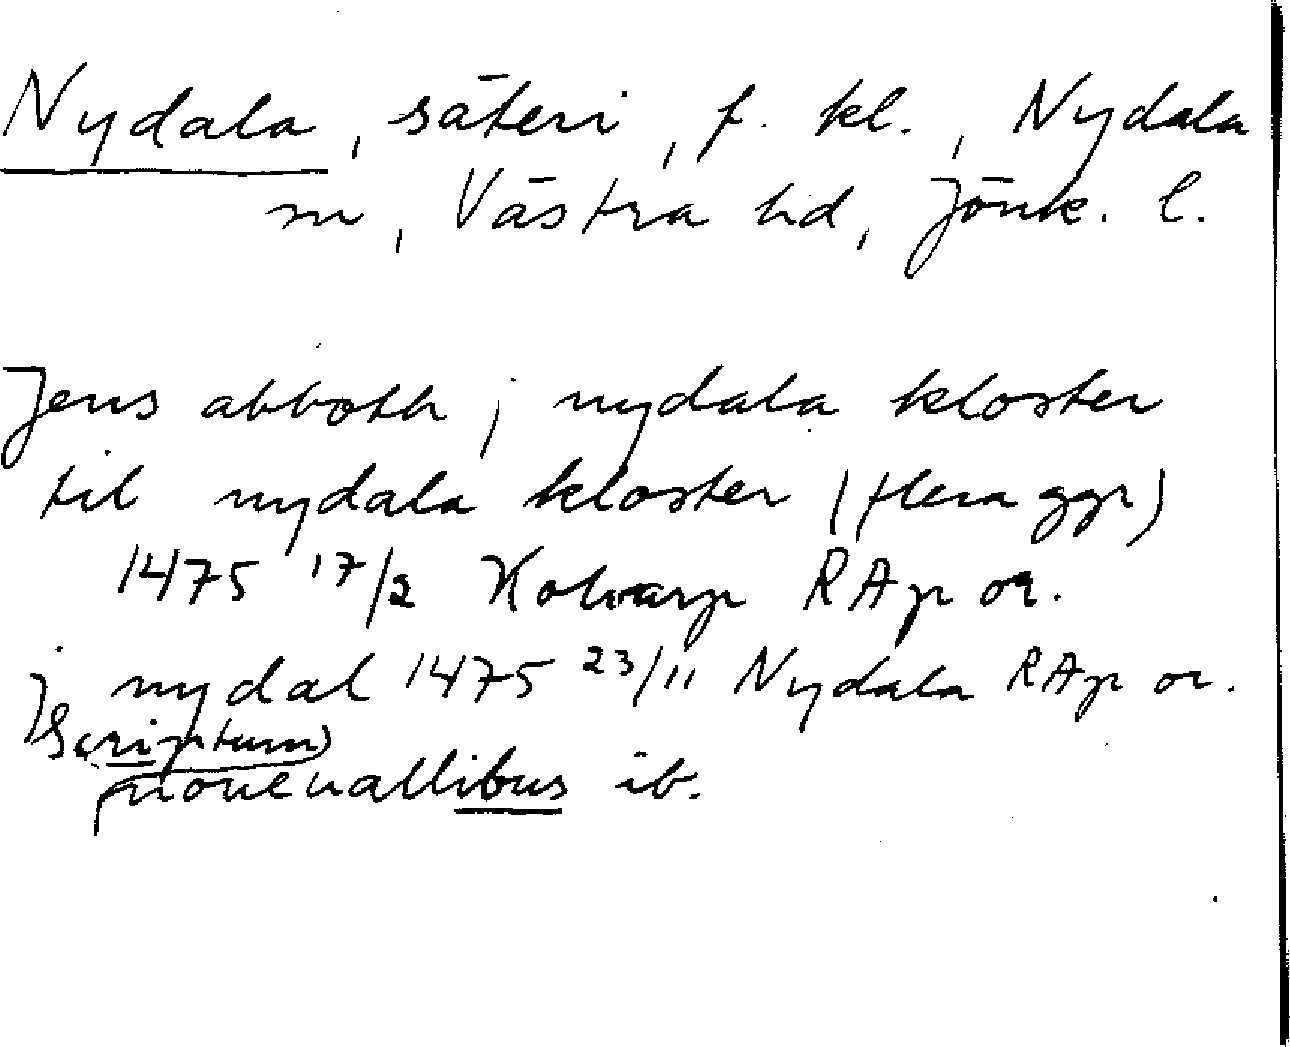 Nydala, säteri, f. kl., Nydala
sn, Västra hd, Jönk. l.
Jens abboth j nydala kloster
til nydala kloster (flera ggr)
1475 17/2 RAp or.
j nydal 1475 23/11 Nydala RAp or.
(Scriptum)
nouevallibus ib.